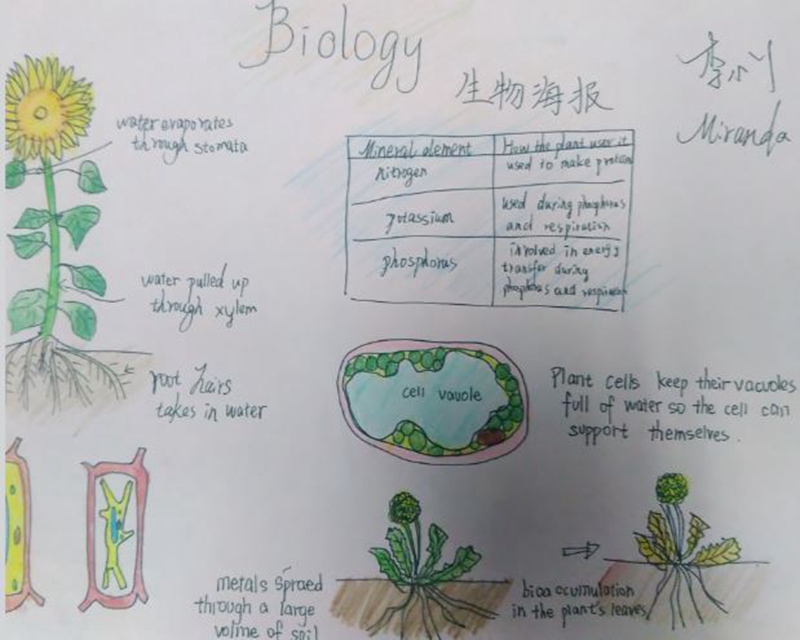 Biology
生物海报
李小丫
Miranda
water evaporates
through stomata
Mineral element
How the plant uses it
nitrogen
used to make protein
potassium
used during phosphorus
and respiration
phosphorus
involved in energy
transfer during
phosphorus and respiration
water pulled up
through xylem
root hairs
takes in water
cell vauole
Plant cells keep their vacuoles
full of water so the cell can
support themselves.
metals spraed
through a large
volime of soil
bioaccumulation
in the plant's leaves